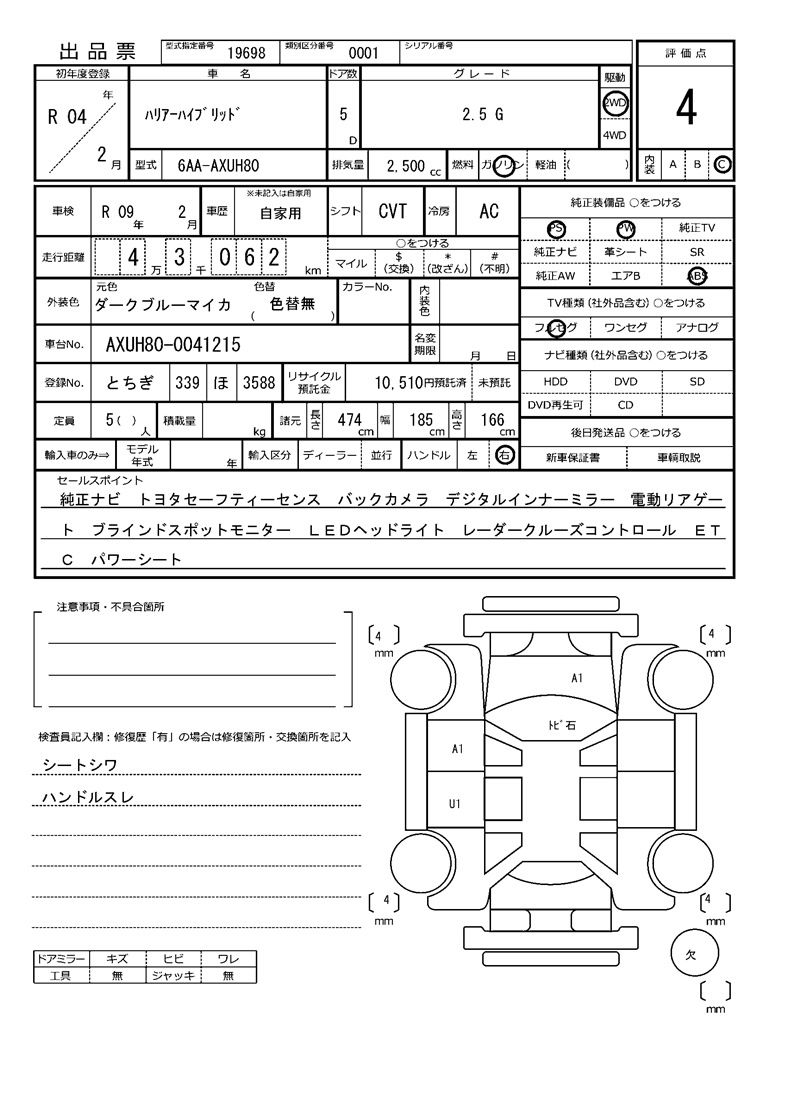 出品票 型式指定番号 19698 類別区分番号 0001 シリアル番号
初年度登録 車名 ドア数 グレード 駆動 評価点
R 04 年 2 月 ハリアーハイブリッド 5 D 2.5 G 2WD 4WD 4
型式 6AA-AXUH80 排気量 2,500 cc 燃料 ガソリン 軽油 ( ) 内装 A B C
車検 R 09 年 2 月 車歴 ※未記入は自家用 自家用 シフト CVT 冷房 AC 純正装備品 ○をつける
PS PW 純正TV
走行距離 4 万 3 千 0 6 2 km ○をつける
マイル $ (交換) * (改ざん) # (不明)
純正ナビ 革シート SR
純正AW エアB ABS
外装色 元色 ダークブルーマイカ 色替 色替無 ( ) カラーNo. 内装色
TV種類 (社外品含む) ○をつける
フルセグ ワンセグ アナログ
車台No. AXUH80-0041215 名変期限 月 日
ナビ種類 (社外品含む) ○をつける
登録No. とちぎ 339 ほ 3588 リサイクル預託金 10,510円預託済 未預託
HDD DVD SD
DVD再生可 CD
定員 5( ) 人 積載量 kg 諸元 長さ 474 cm 幅 185 cm 高さ 166 cm
後日発送品 ○をつける
輸入車のみ⇒ モデル年式 年 輸入区分 ディーラー 並行 ハンドル 左 右
新車保証書 車輌取説
セールスポイント
純正ナビ トヨタセーフティーセンス バックカメラ デジタルインナーミラー 電動リアゲー
ト ブラインドスポットモニター LEDヘッドライト レーダークルーズコントロール ET
C パワーシート
注意事項・不具合箇所
検査員記入欄：修復歴「有」の場合は修復箇所・交換箇所を記入
シートシワ
ハンドルスレ
ドアミラー キズ ヒビ ワレ
工具 無 ジャッキ 無
4 mm
4 mm
A1
トビ石
A1
U1
4 mm
4 mm
欠
mm